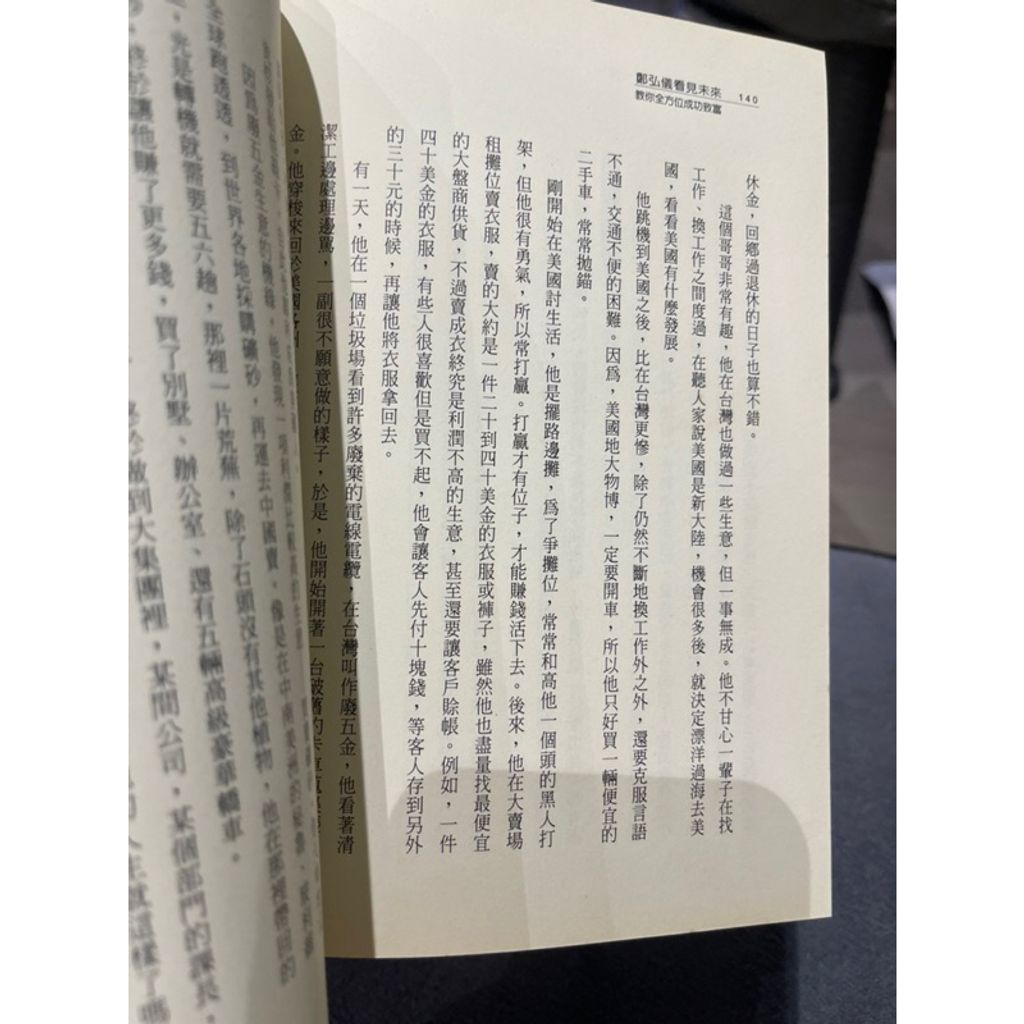 鄭弘儀看見未來
教你全方位成功致富
140
休金，回鄉過退休的日子也算不錯。
這個哥哥非常有趣，他在台灣也做過一些生意，但一事無成。他不甘心一輩子在找
工作、換工作之間度過，在聽人家說美國是新大陸，機會很多後，就決定漂洋過海去美
國，看看美國有什麼發展。
他跳機到美國之後，比在台灣更慘，除了仍然不斷地換工作外之外，還要克服言語
不通，交通不便的困難。因為，美國地大物博，一定要開車，所以他只好買一輛便宜的
二手車，常常拋錨。
剛開始在美國討生活，他是擺路邊攤，為了爭攤位，常常和高他一個頭的黑人打
架，但他很有勇氣，所以常打贏。打贏才有位子，才能賺錢活下去。後來，他在大賣場
租攤位賣衣服，賣的大約是一件二十到四十美金的衣服或褲子，雖然他也盡量找最便宜
的大盤商供貨，不過賣成衣終究是利潤不高的生意，甚至還要讓客戶賒帳。例如，一件
四十美金的衣服，有些人很喜歡但是買不起，他會讓客人先付十塊錢，等客人存到另外
的三十元的時候，再讓他將衣服拿回去。
有一天，他在一個垃圾場看到許多廢棄的電線電纜，在台灣叫作廢五金，他看著清
潔工邊處理邊罵，一副很不願意做的樣子，於是，他開始開著一台破舊的卡車
金。他穿梭來回於美國各州
因為廢五金生意的機緣，他發現一項利潤比較高的生意
全球跑透透，到世界各地採購礦砂，再運去中國賣。像是在中南美洲的祕魯、
光是轉機就需要五六趟，那裡一片荒蕪，除了石頭沒有其他植物，他在那裡帶回的
終於讓他賺了更多錢，買了別墅、辦公室、還有五輛高級豪華轎車。
大集團裡，某間公司，某個部門的課長，
人生就這樣了嗎